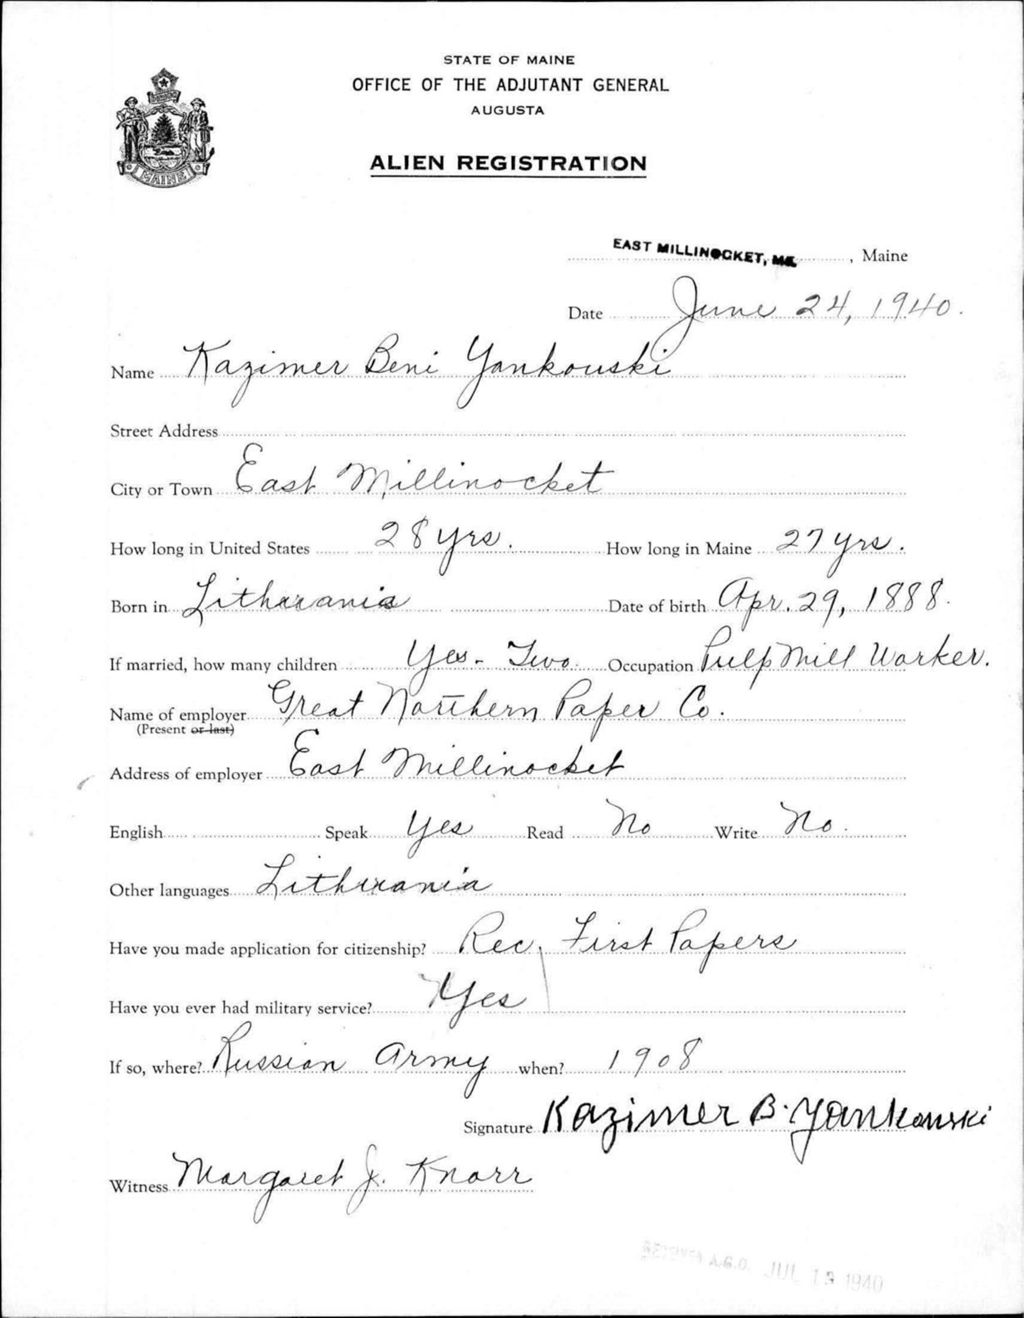 STATE OF MAINE
OFFICE OF THE ADJUTANT GENERAL
AUGUSTA
ALIEN REGISTRATION
MAINE
EAST MILLINOCKET, ME. , Maine
Date June 24, 1940.
Name Kazimer Beni Yankouski
Street Address
City or Town East Millinocket
How long in United States 28 yrs. How long in Maine 27 yrs.
Born in Lithuania Date of birth Apr. 29, 1888.
If married, how many children Yes - Two Occupation Pulp Mill Worker.
Name of employer Great Northern Paper Co.
(Present or last)
Address of employer East Millinocket
English Speak Yes Read No Write No.
Other languages Lithuania
Have you made application for citizenship? Rec. First Papers
Have you ever had military service? Yes
If so, where? Russian Army when? 1908
Signature Kazimer B. Yankouski
Witness Margaret J. Knorr
RECEIVED A.G.O. JUL 1940